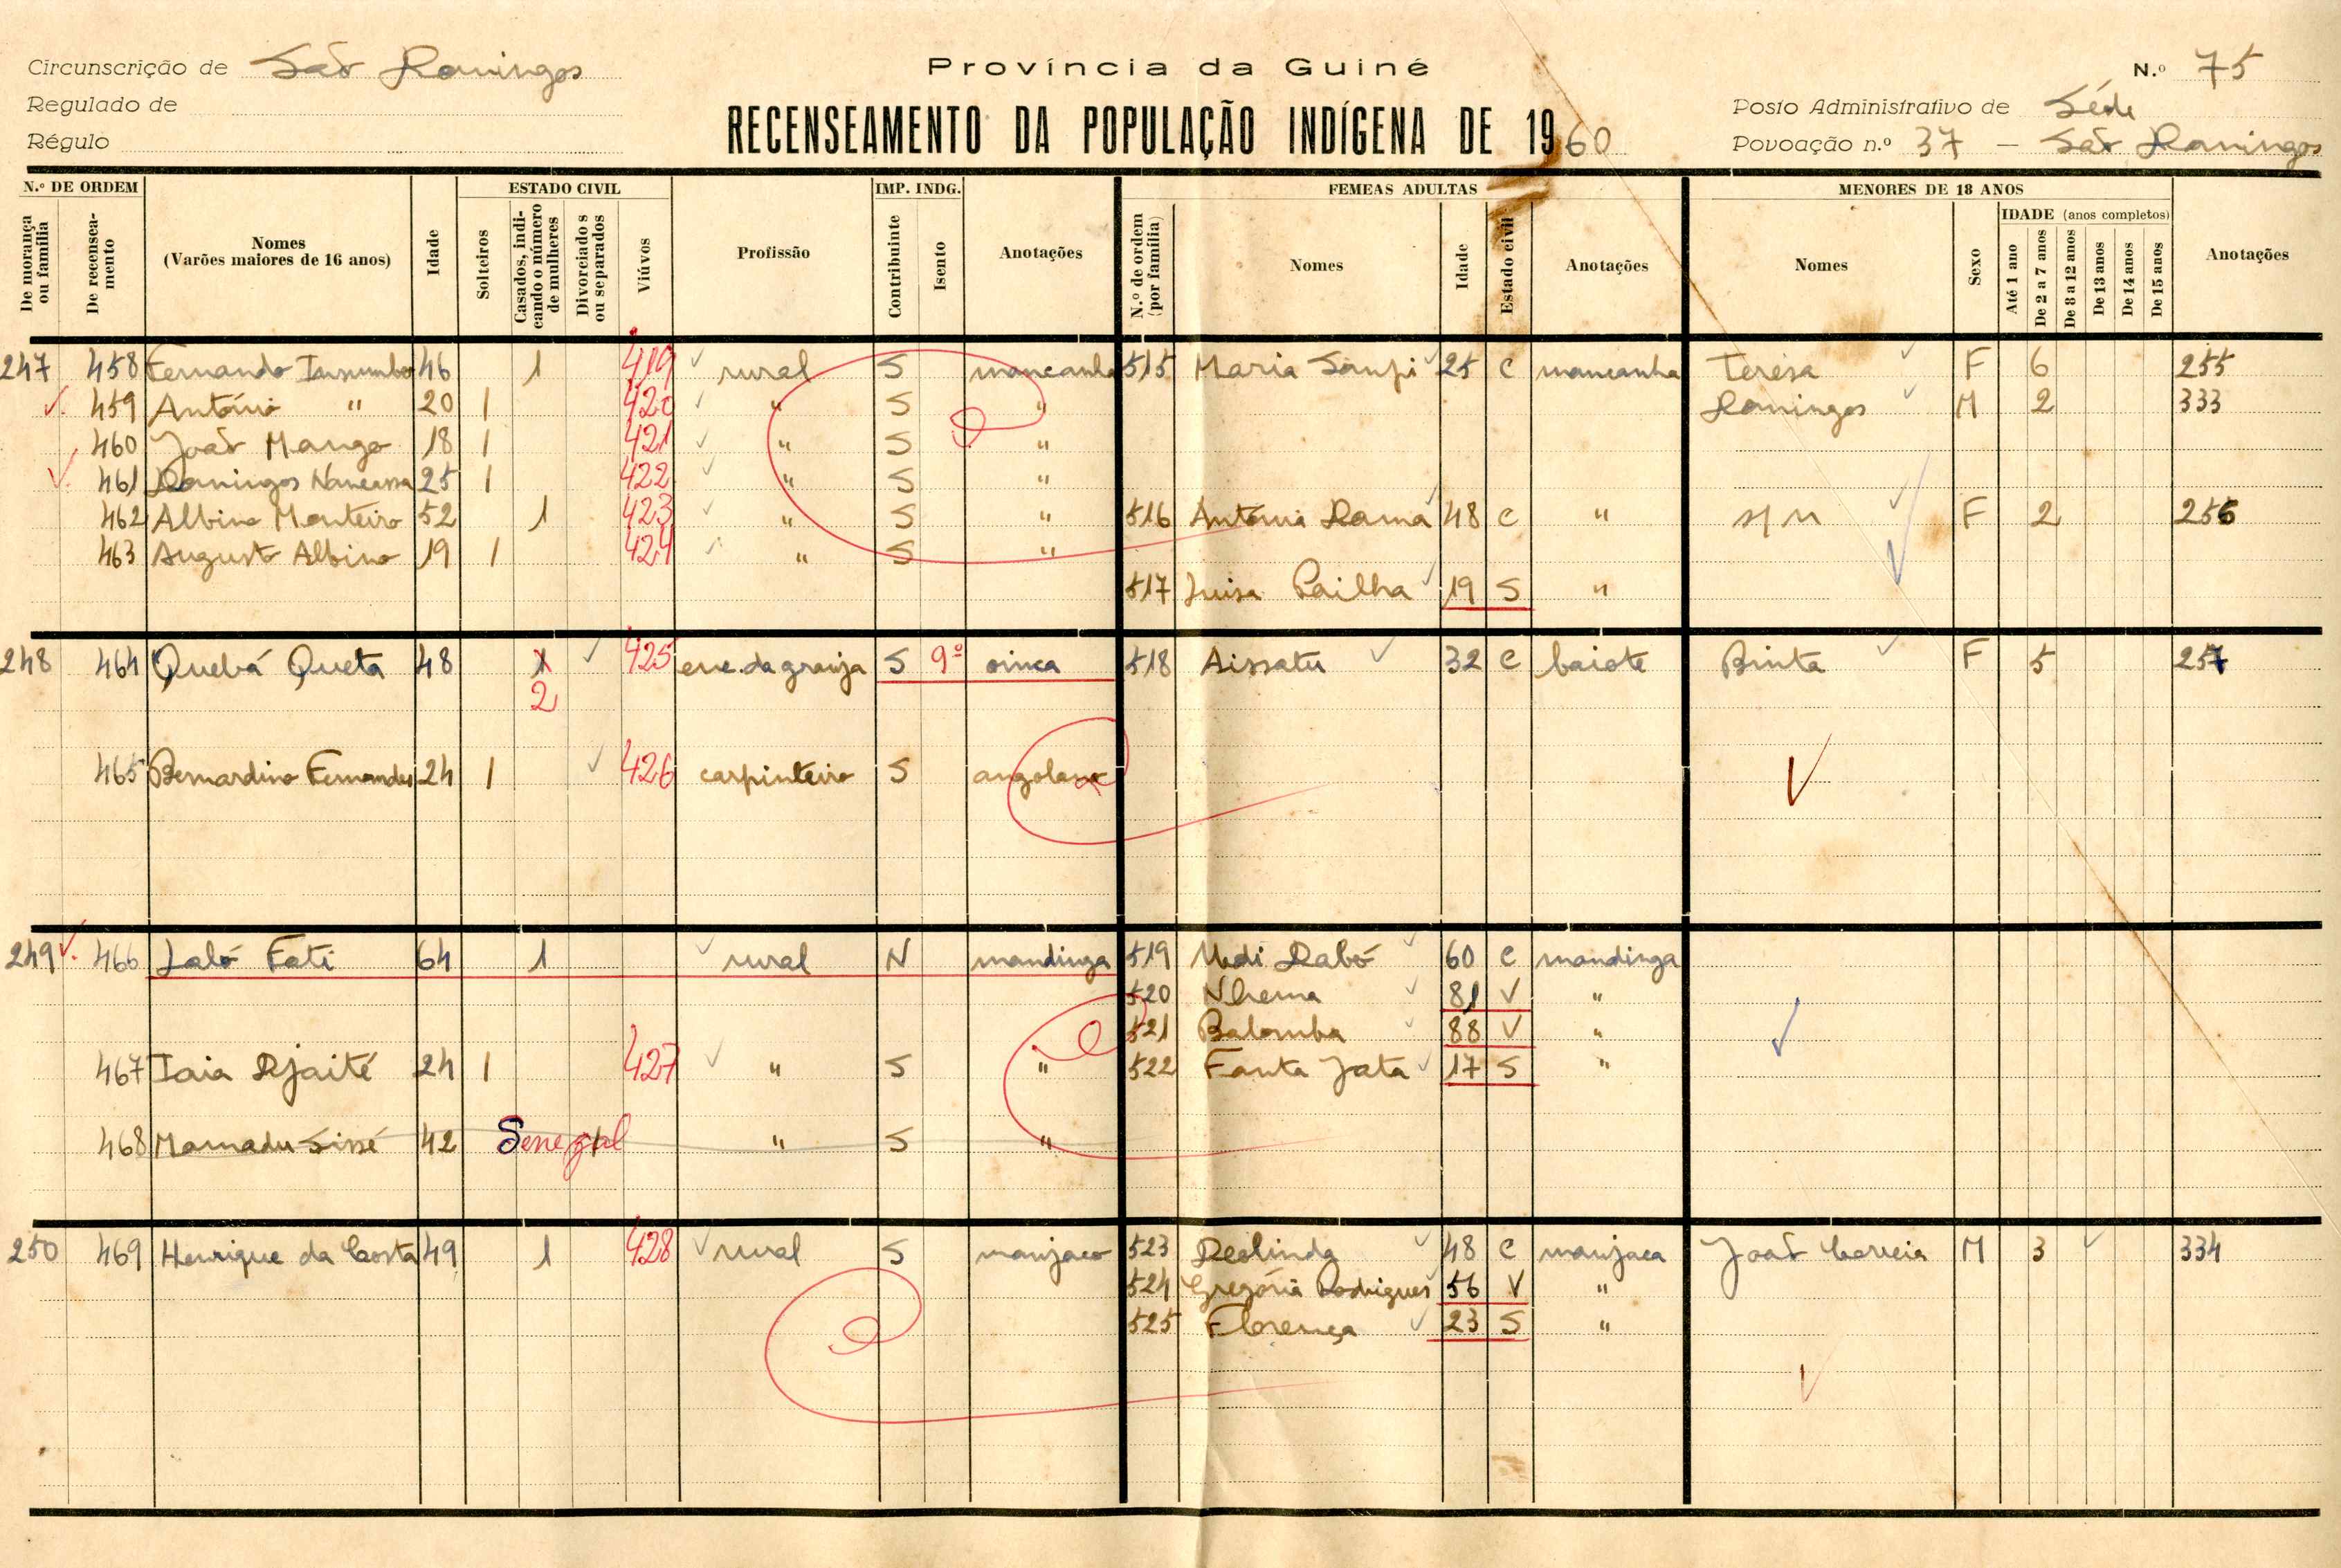 Circunscrição de São Domingos
Província da Guiné
N.º 75
Regulado de
RECENSEAMENTO DA POPULAÇÃO INDÍGENA DE 1960
Posto Administrativo de Séde
Régulo
Povoação n.º 37 — São Domingos
N.º DE ORDEM ESTADO CIVIL IMP. INDG. FEMEAS ADULTAS MENORES DE 18 ANOS
De morança ou família De recenseamento Nomes (Varões maiores de 16 anos) Idade Solteiros Casados, indicando o número de mulheres Divorciados ou separados Viúvos Profissão Contribuinte Isento Anotações N.º de ordem (por família) Nomes Idade Estado civil Anotações Nomes Sexo IDADE (anos completos) Até 1 ano De 2 a 7 anos De 8 a 12 anos De 13 anos De 14 anos De 15 anos Anotações
247 458 Fernando 46 1 419 rural S mancanha 515 Maria Sampi 25 C mancanha Teresa F 6 255
459 António " 20 1 420 " S " Domingos M 2 333
460 João Mango 18 1 421 " S "
461 Domingos Nancassa 25 1 422 " S "
462 Albino Monteiro 52 1 423 " S " 516 Antónia Dama 48 C " s/n F 2 256
463 Augusto Albino 19 1 424 " S "
517 Luisa Pailha 19 S "
248 464 Quebá Queta 48 1 425 enc. da granja S 9º oinca 518 Aissatu 32 C baiote Binta F 5 257
2
465 Bernardino Fernandes 24 1 426 carpinteiro S angolano
249 466 Laló Fati 64 1 rural N mandinga 519 Udi Dabó 60 C mandinga
520 Nhema 81 V "
521 Balomba 88 V "
467 Iaia Djaité 24 1 427 " S " 522 Fanta Jata 17 S "
468 Mamadu Sissé 42 Senegal " S "
250 469 Henrique da Costa 49 1 428 rural S manjaco 523 Deolinda 48 C manjaca João Correia M 3 334
524 Gregória Rodrigues 56 V "
525 Florença 23 S "